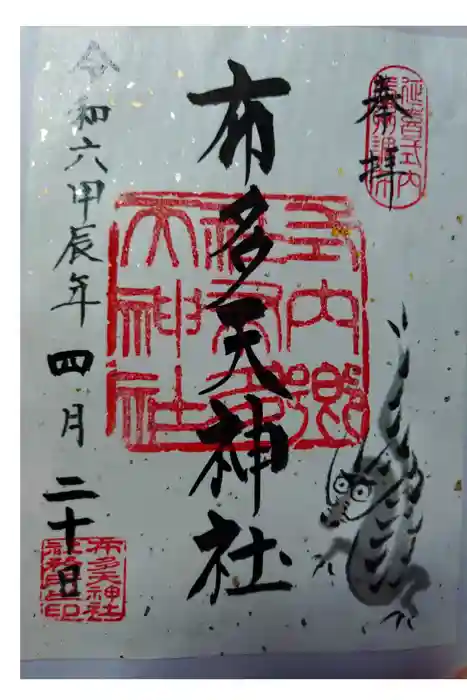 奉拝
延喜式内
布多天神社
式内郷社
布多天神社
令和六甲辰年四月二十日
布多天神社